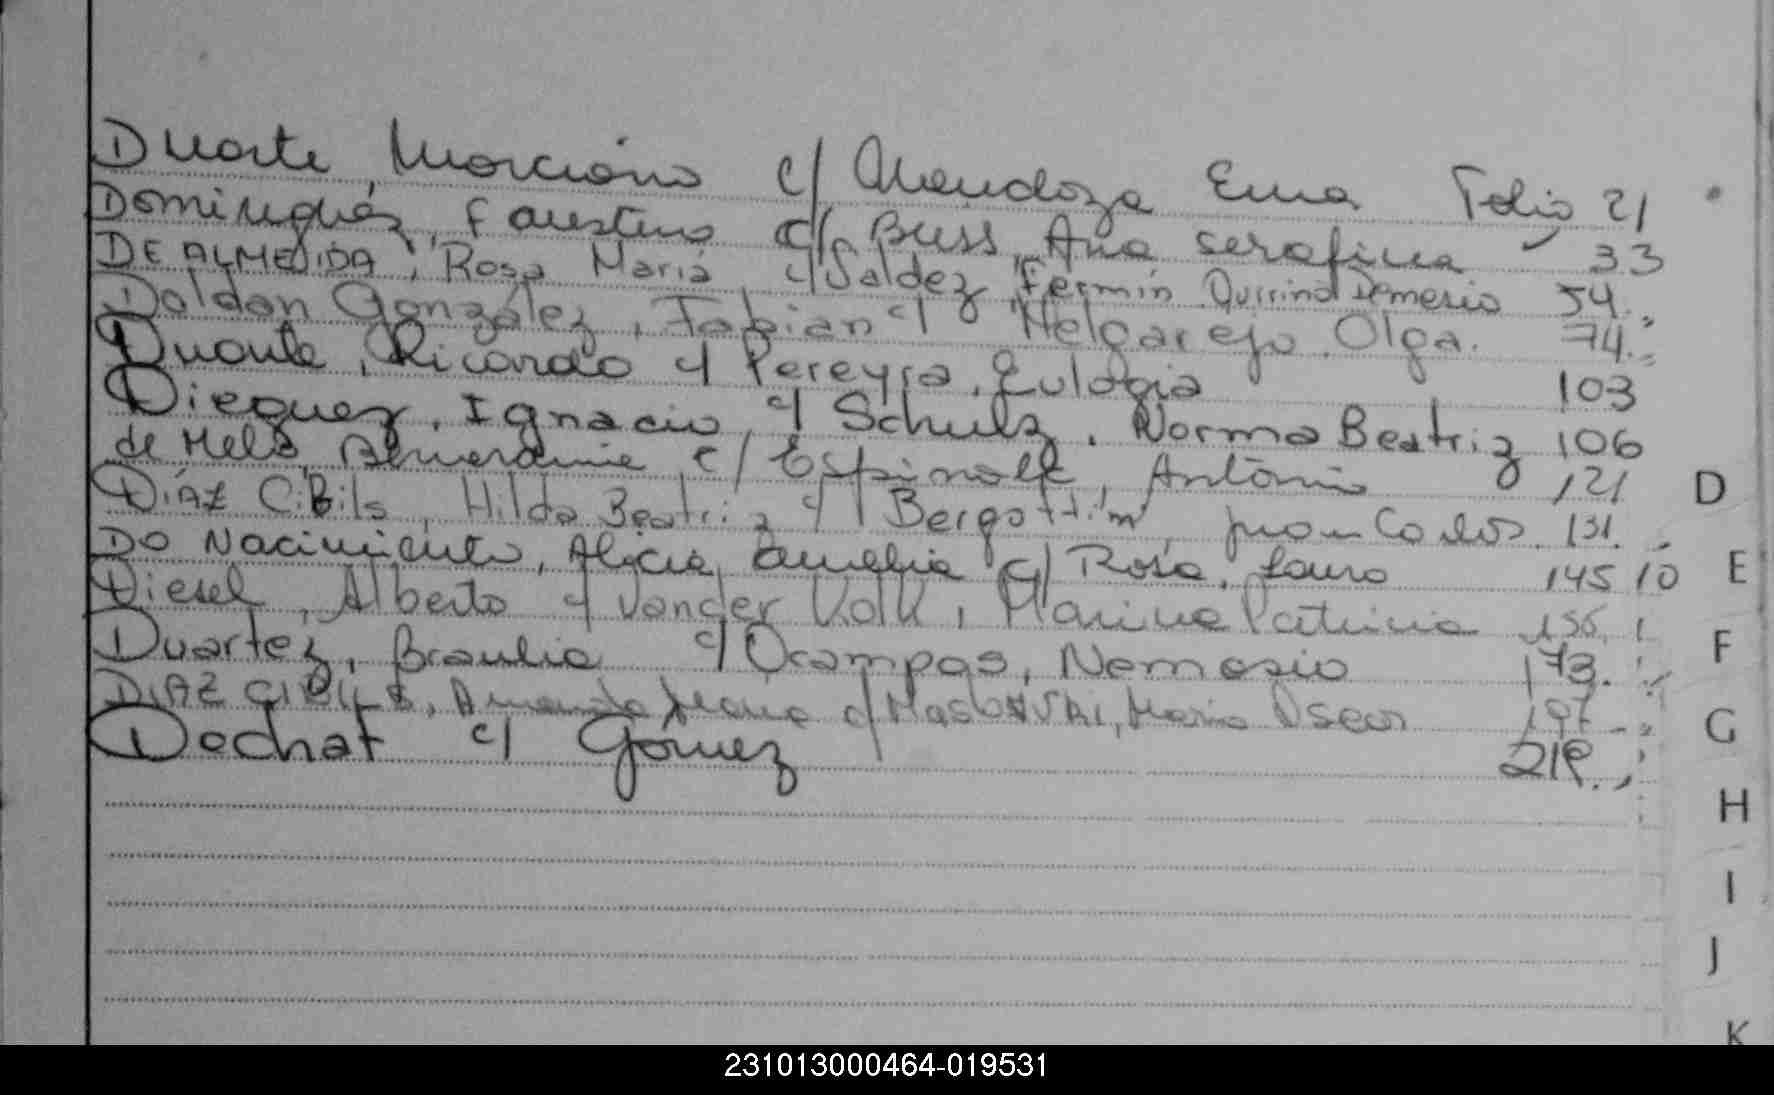 Duarte, Marciano c/ Mendoza Ema Folio 21
Dominguez, Faustino c/ Buss, Ana Serafina 33
DE ALMEIDA, Rosa Maria c/ Valdez Fermín Quirino Demesio 54.
Doldan González, Fabian c/ Melgarejo Olga. 74.
Duarte, Ricardo c/ Pereyra, Eulogia 103
Dieguez, Ignacio, c/ Schulz, Norma Beatriz 106
de Melo, c/ Espinola, Antonio 121
DíAZ CiBils, Hilda Beatriz c/ Juan Carlos. 131.
DO Nacimiento, Alicia Amelia c/ Rosa, Lauro 145
Diesel, Alberto c/ Vander Kolk, Marina Patricia 156.
Duartez, Braulia c/ Ocampos, Nemesio 173.
DIAZ CIBILS, Amanda c/ Mario Oscar 197
Dechat c/ Gomez
D
E
F
G
H
I
J
K
231013000464-019531